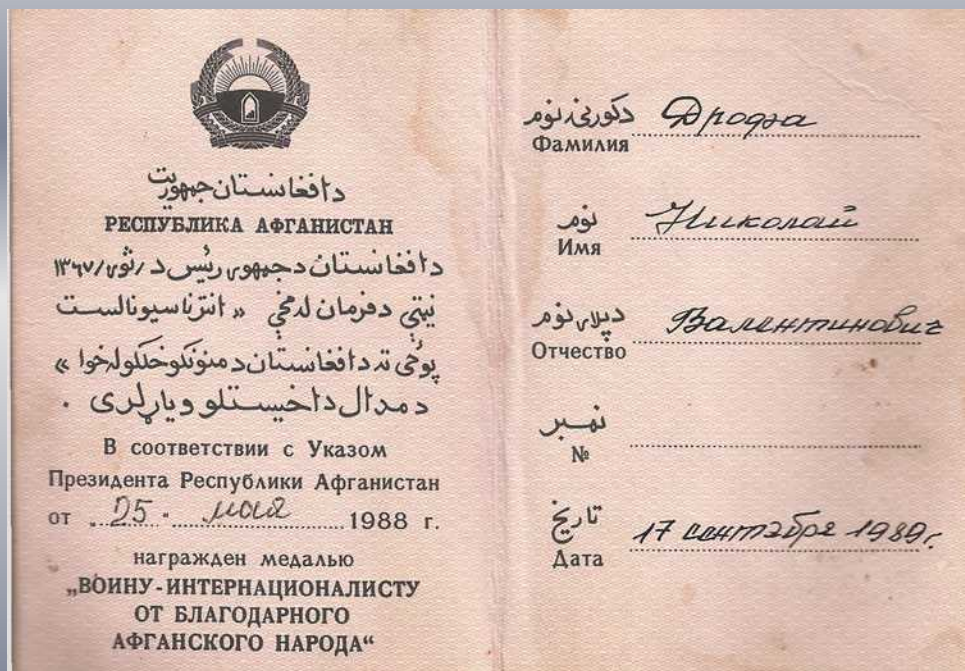 دافغانستان جمهوریت
РЕСПУБЛИКА АФГАНИСТАН
دافغانستان دجمهور رئیس د /ثور/ ۱۳۶۷
نیټې دفرمان له مخې « انترناسیونالست
پوځي ته دافغانستان دمننوکو خلکو له خوا »
دمدال داخیستلو ویاړلری .
В соответствии с Указом
Президента Республики Афганистан
от „25“ мая 1988 г.
награжден медалью
„ВОИНУ-ИНТЕРНАЦИОНАЛИСТУ
ОТ БЛАГОДАРНОГО
АФГАНСКОГО НАРОДА“
دکورنۍ نوم
Фамилия Дрозда
نوم
Имя Николай
دپلار نوم
Отчество Валентинович
نمبر
№
تاریخ
Дата 17 сентября 1989г.